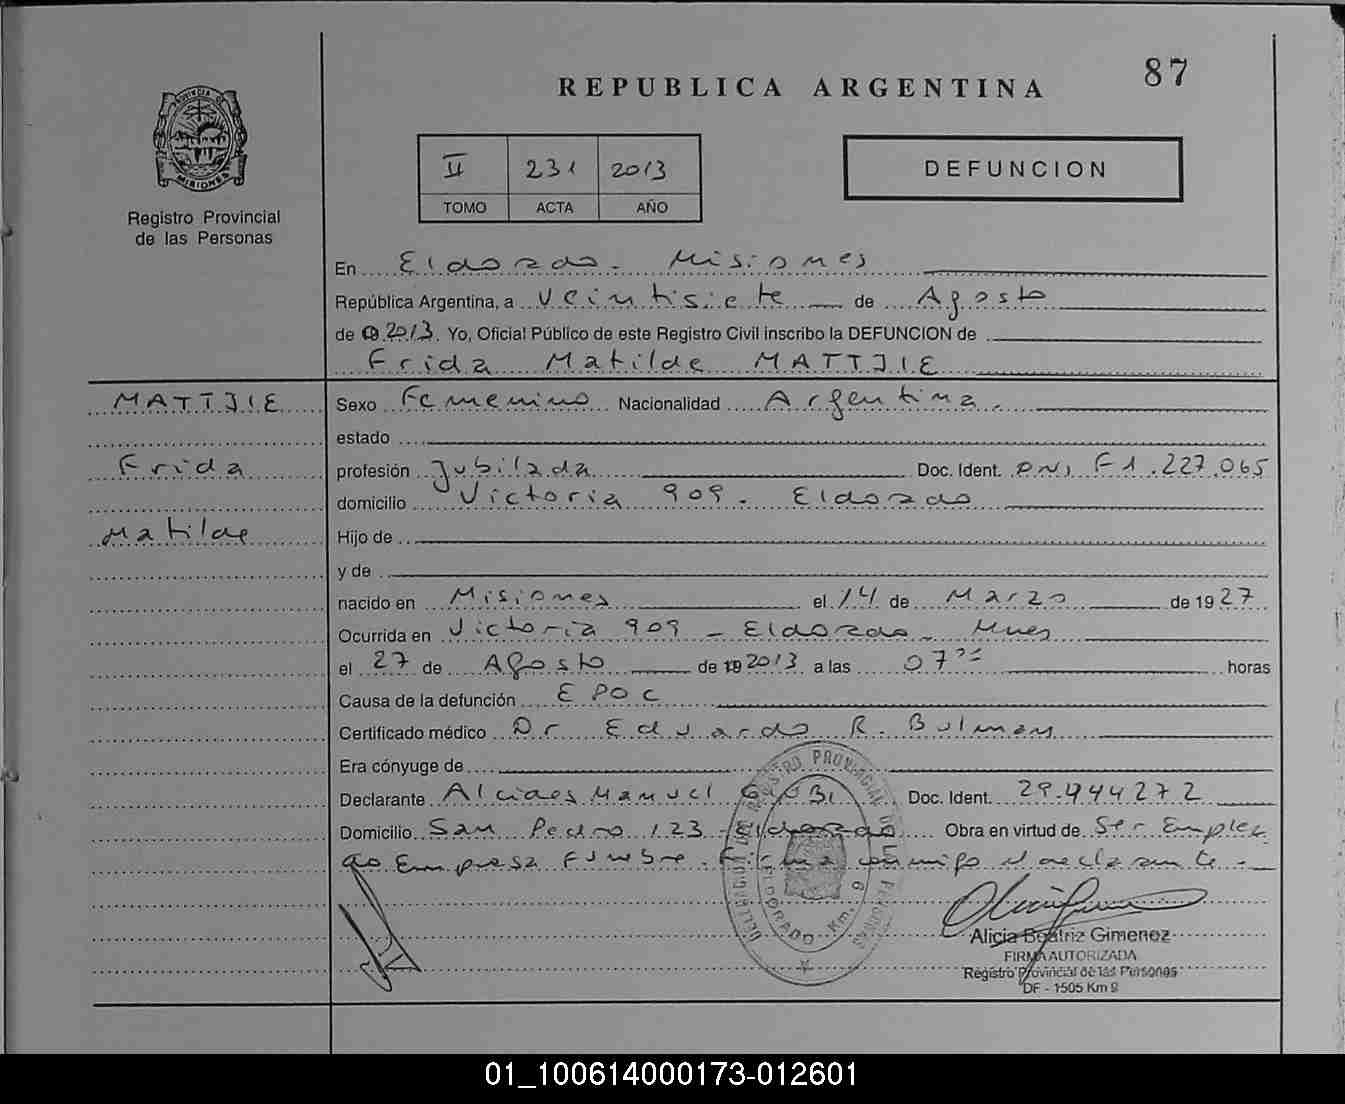 87
REPUBLICA ARGENTINA
PROVINCIA DE
MISIONES
Registro Provincial
de las Personas
II 231 2013
TOMO ACTA AÑO
DEFUNCION
En Eldorado - Misiones
República Argentina, a veintisiete de Agosto
de 2013. Yo, Oficial Público de este Registro Civil inscribo la DEFUNCION de
Frida Matilde MATTJIE
MATTJIE
Frida
Matilde
Sexo Femenino Nacionalidad Argentina.
estado
profesión Jubilada Doc. Ident. DNI F1.227.065
domicilio Victoria 909 - Eldorado
Hijo de
y de
nacido en Misiones el 14 de Marzo de 1927
Ocurrida en Victoria 909 - Eldorado - Mnes
el 27 de Agosto de 2013 a las 07 horas
Causa de la defunción EPOC
Certificado médico Dr Eduardo R. Bulman
Era cónyuge de
Declarante Alcides Manuel Doc. Ident. 29.444272
Domicilio San Pedro 123 - Eldorado Obra en virtud de Ser Emplea
do Empresa Funebre. Firma conmigo el declarante.-
DELEGACION DEL REGISTRO PROVINCIAL DE LAS PERSONAS
ELDORADO Km. 9
Alicia Beatriz Gimenez
FIRMA AUTORIZADA
Registro Provincial de las Personas
DF - 1505 Km 9
01_100614000173-012601